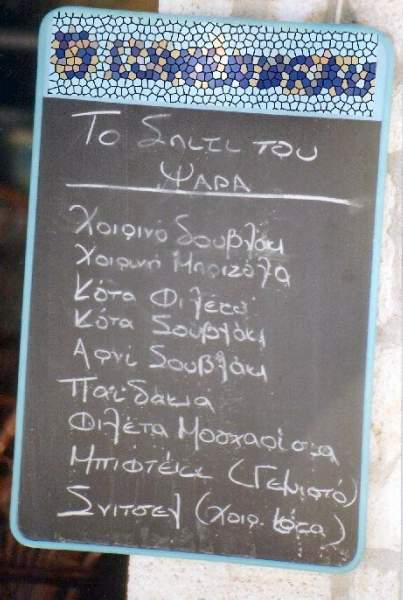 Το Σπιτι του
ΨΑΡΑ
Χοιρινό Σουβλάκι
Χοιρινή Μπριζόλα
Κότα Φιλέτο
Κότα Σουβλάκι
Αρνί Σουβλάκι
Παϊδάκια
Φιλέτα Μοσχαρίσια
Μπιφτέκι (Γεμιστό)
Σνιτσελ (χοιρ. κότα)